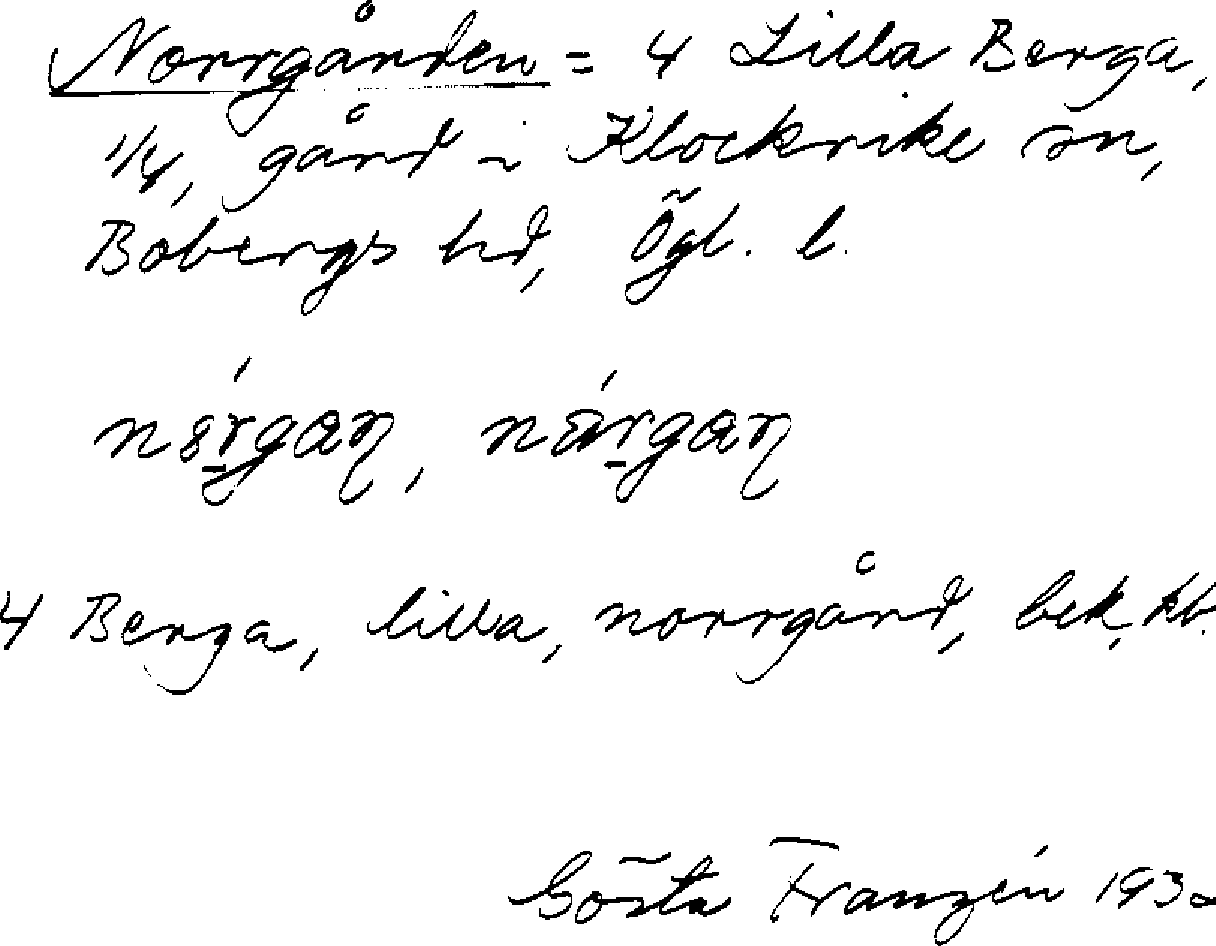 Norrgården = 4 Lilla Berga,
1/4, gård i Klockrike sn,
Bobergs hd, Ögl. l.
4 Berga, lilla, norrgård, bek, kb.
Gösta Franzén 1932